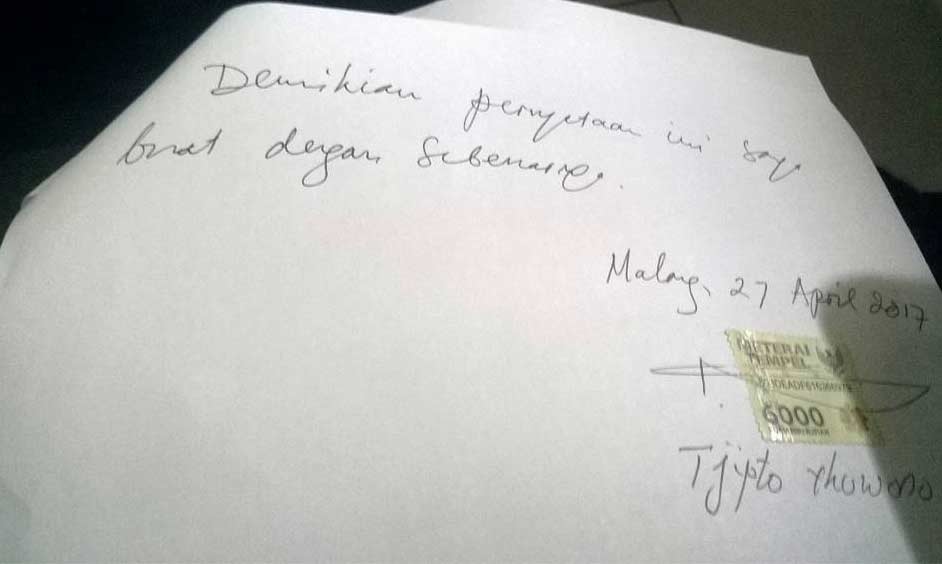 Demikian pernyataan ini saya
buat dengan sebenarnya.
Malang, 27 April 2017
METERAI
TEMPEL
6000
Tjipto Yhuwono